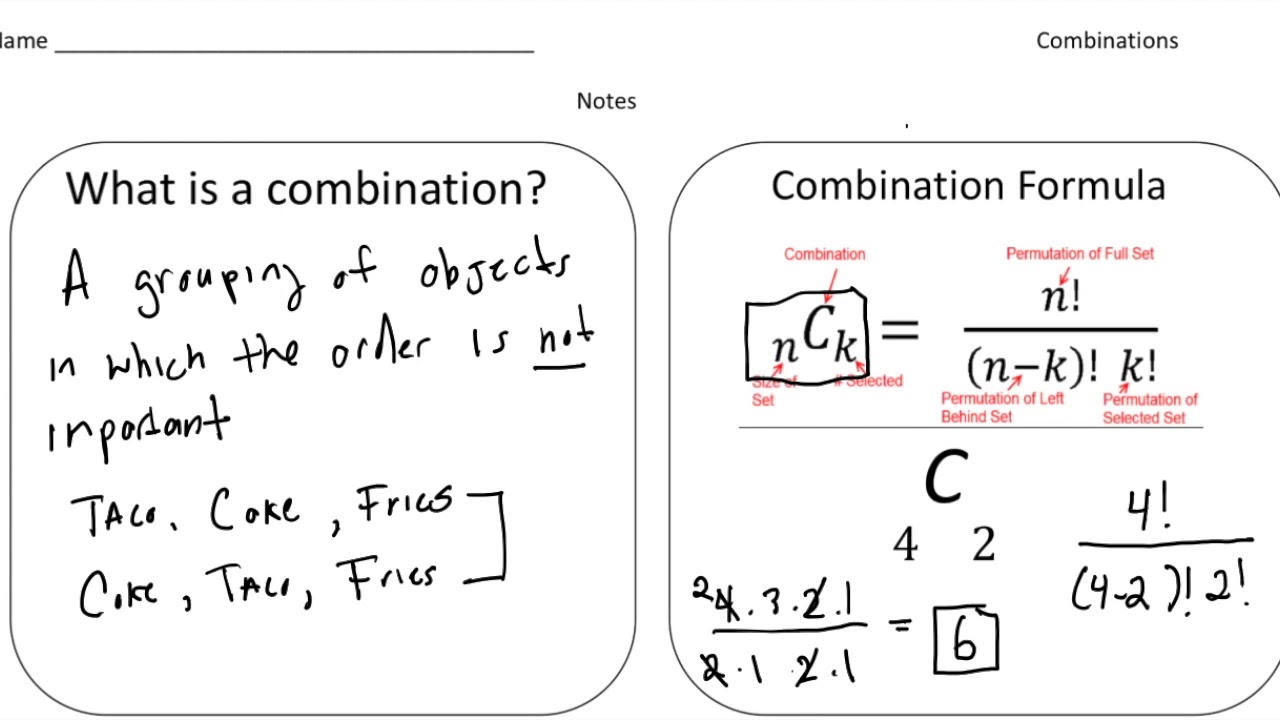 Name
Combinations
Notes
What is a combination?
A grouping of objects
in which the order is not
inportant
Taco, Coke, Fries
Coke, Taco, Fries
Combination Formula
Combination
Permutation of Full Set
nCk = n! / (n−k)! k!
Size of Set
# Selected
Permutation of Left
Behind Set
Permutation of
Selected Set
C
4 2
4!
(4-2)! 2!
2 4·3·2·1
2·1 2·1
= 6